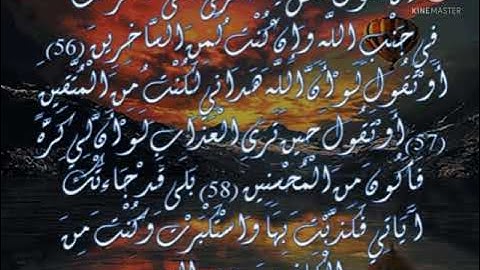 KINEMASTER
فِي جَنْبِ اللَّهِ وَإِنْ كُنْتُ لَمِنَ السَّاخِرِينَ (56)
أَوْ تَقُولَ لَوْ أَنَّ اللَّهَ هَدَانِي لَكُنْتُ مِنَ الْمُتَّقِينَ
(57) أَوْ تَقُولَ حِينَ تَرَى الْعَذَابَ لَوْ أَنَّ لِي كَرَّةً
فَأَكُونَ مِنَ الْمُحْسِنِينَ (58) بَلَى قَدْ جَاءَتْكَ
آيَاتِي فَكَذَّبْتَ بِهَا وَاسْتَكْبَرْتَ وَكُنْتَ مِنَ